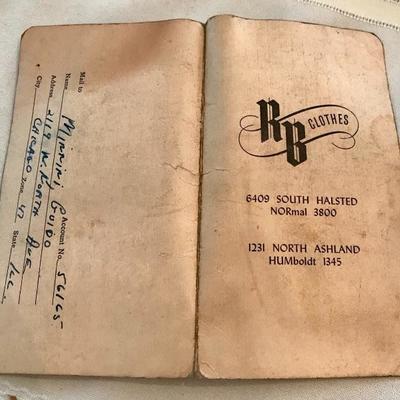 Mail to
Name Minnini Guido Account No. 56165
Address 2119 W. North Ave
City Chicago Zone 47 State Ill
RB CLOTHES
6409 SOUTH HALSTED
NORmal 3800
1231 NORTH ASHLAND
HUMboldt 1345